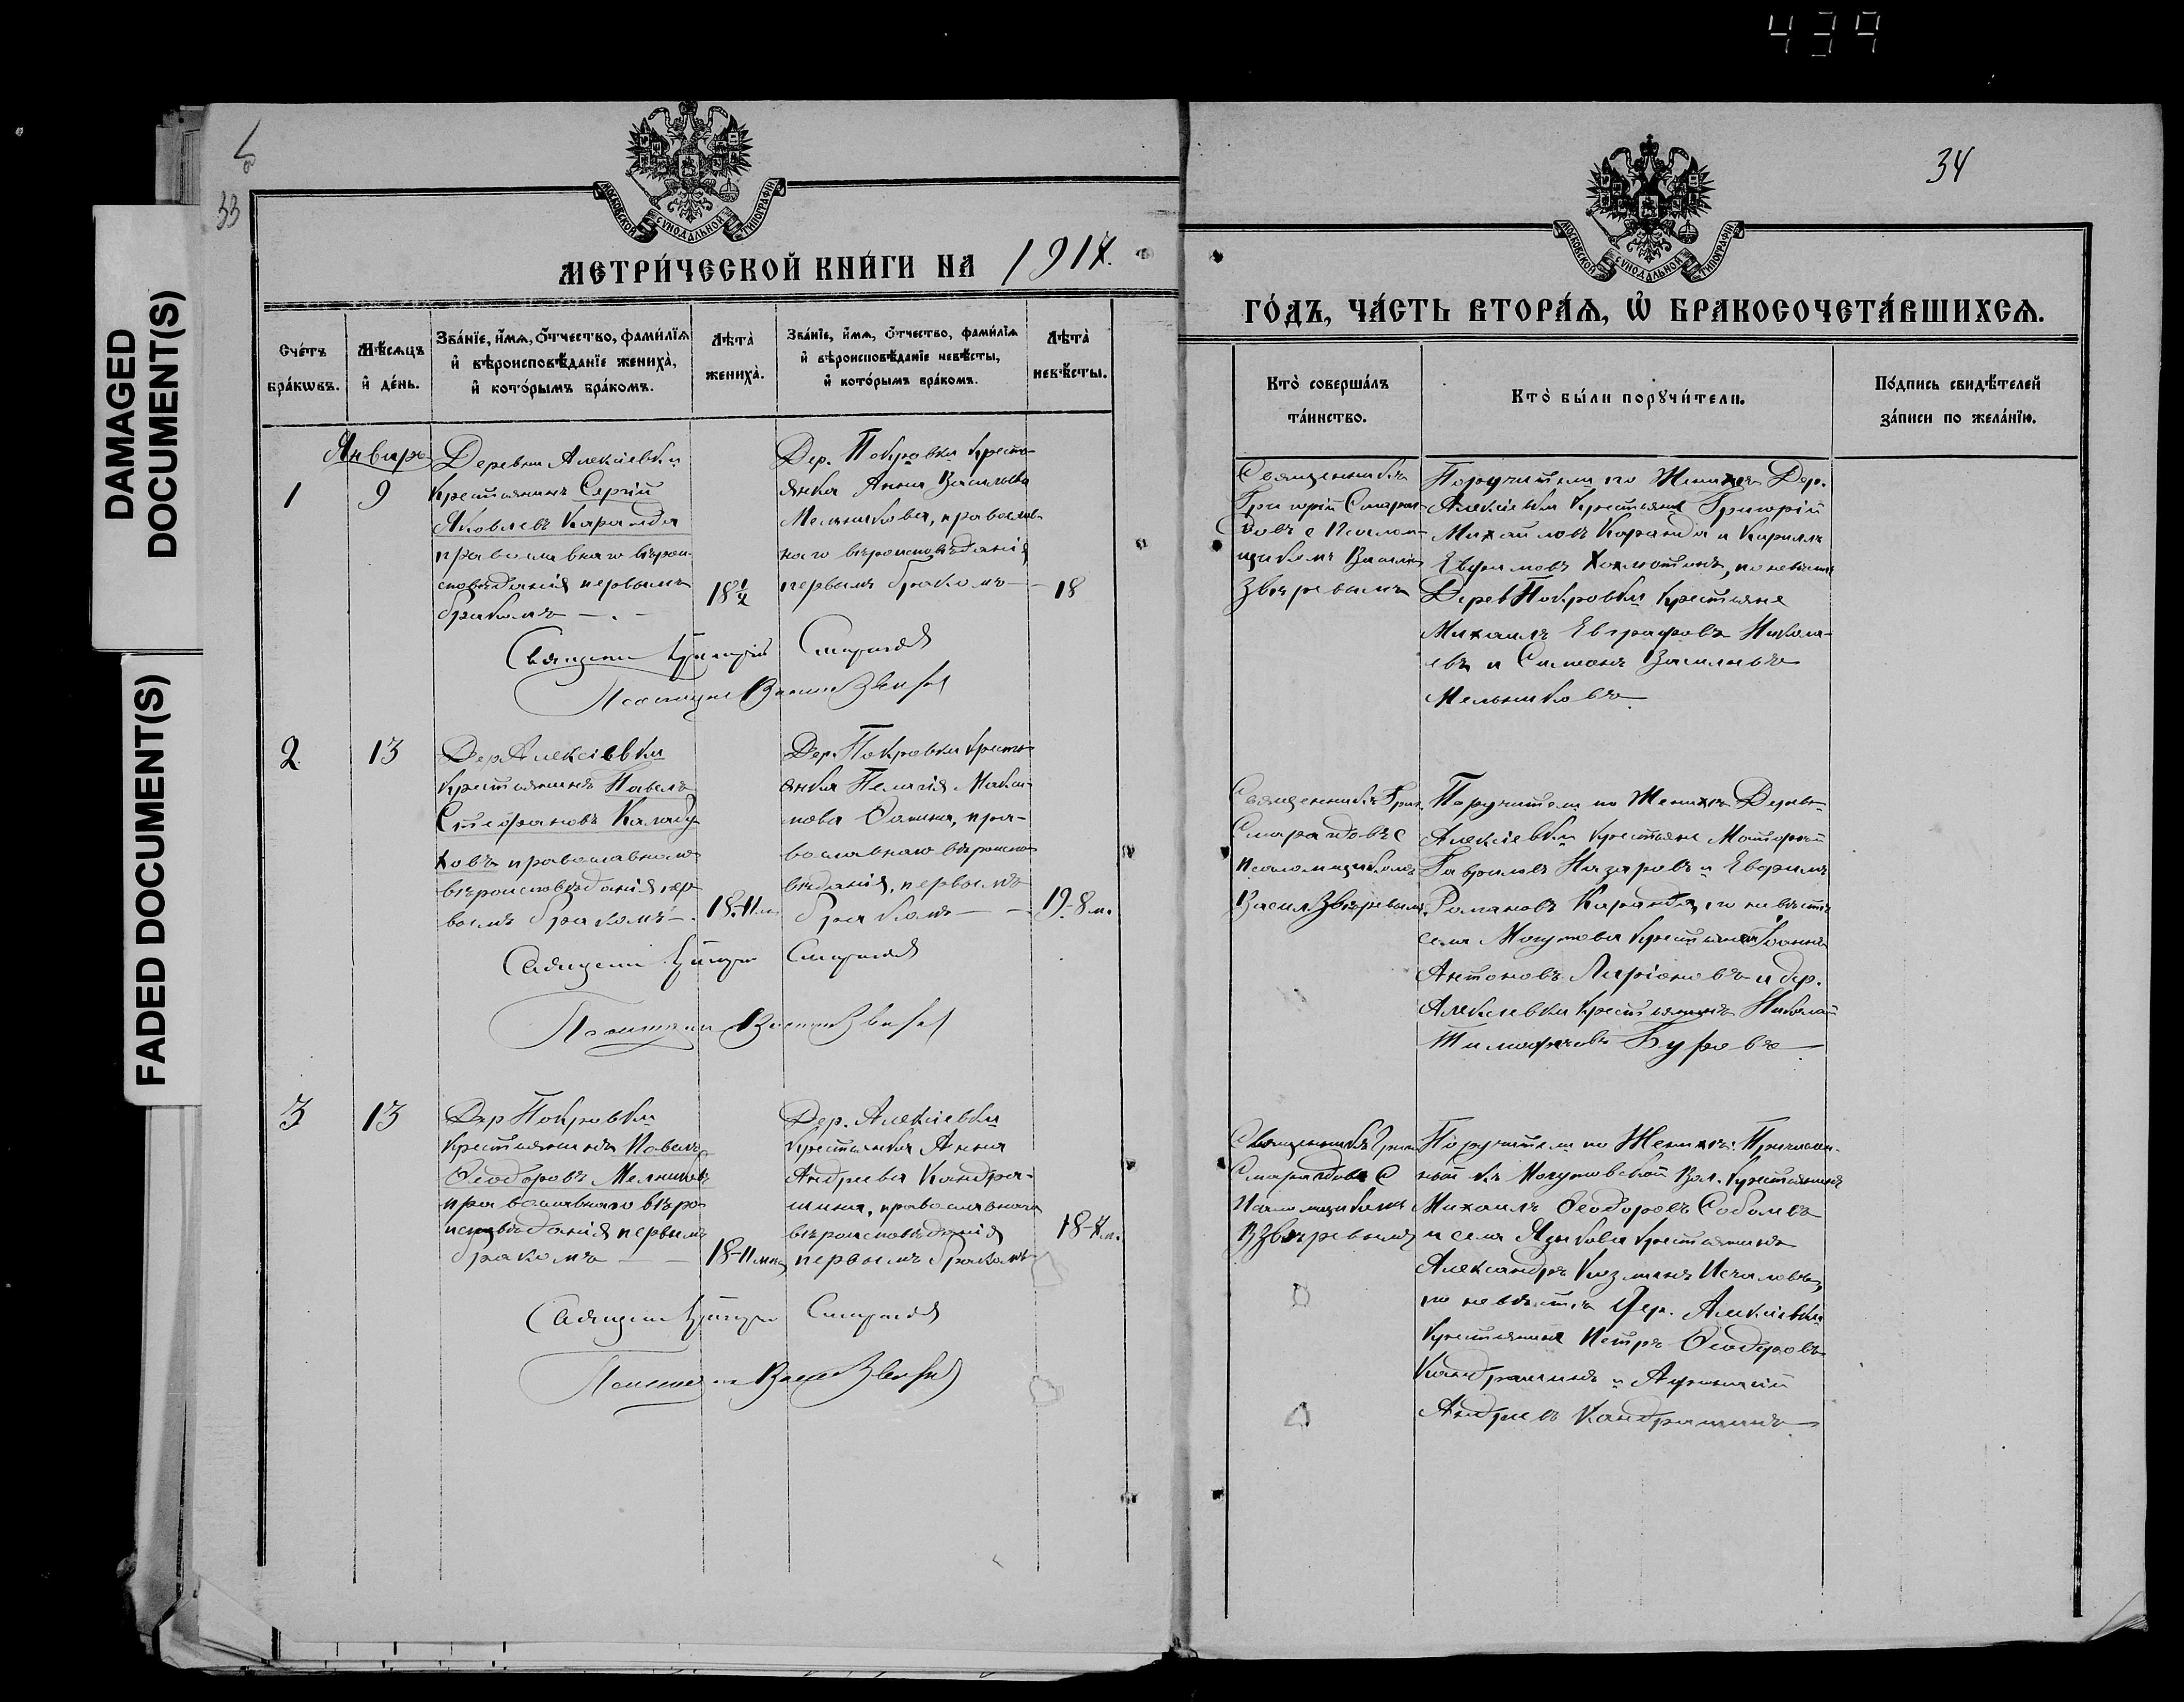 439
DAMAGED DOCUMENT(S)
FADED DOCUMENT(S)
33
МОСКОВСКОЙ СѴНОДАЛЬНОЙ ТИПОГРАФІИ.
МЕТРИ́ЧЕСКОЙ КНИ́ГИ НА 1914.
Сче́тъ бра́кωвъ.
Мѣ́сѧцъ и҆ де́нь.
Зва́нїе, и҆́мѧ, ѻ҆́тчество, фами́лїѧ и҆ вѣроисповѣ́данїе жениха̀, и҆ кото́рымъ бра́комъ.
Лѣта̀ жениха̀.
Зва́нїе, и҆́мѧ, ѻ҆́тчество, фами́лїѧ и҆ вѣроисповѣ́данїе невѣ́сты, и҆ кото́рымъ бра́комъ.
Лѣта̀ невѣ́сты.
Январь
1
9
Деревни Алексіевки
крестьянинъ Сергій
Яковлевъ Каранда
православнаго вѣроис-
повѣданія первымъ
бракомъ
18 1/2
Дер. Покровки кресть-
янка Анна Васильева
Мельникова, православ-
наго вѣроисповѣданія
первымъ бракомъ
18
Священн. Григорій
Псаломщ. Васил. Звѣрев
2
13
Дер. Алексіевки
крестьянинъ Павелъ
Стефановъ
ховъ православнаго
вѣроисповѣданія пер-
вымъ бракомъ
18-11 м.
Дер. Покровки кресть-
янка Пелагія
нова Фомина, пра-
вославнаго вѣроиспо-
вѣданія, первымъ
бракомъ
19-8 м.
3
13
Дер Покровки
крестьянинъ Павелъ
Ѳеодоровъ Мельниковъ
православнаго вѣро-
исповѣданія первымъ
бракомъ
18-11 мц
Дер. Алексіевки
крестьянка Анна
Андреева Кандра-
шина, православнаго
вѣроисповѣданія
первымъ бракомъ
34
МОСКОВСКОЙ СѴНОДАЛЬНОЙ ТИПОГРАФІИ.
ГО́ДЪ, ЧА́СТЬ ВТОРА́Ѧ, Ѡ҆ БРАКОСОЧЕТА́ВШИХСѦ.
Кто̀ соверша́лъ та́инство.
Кто̀ бы́ли порꙋчи́тели.
По́дпись свидѣ́телей за́писи по жела́нїю.
Священникъ
Григорій Смараг-
довъ с Псалом-
щикомъ Василіем
Звѣревымъ
Поручители по Женихѣ Дер.
Алексіевки крестьяне Григорій
Михаиловъ Каранда и Кириллъ
Евфимовъ, по невѣстѣ
Дерев Покровки крестьяне
Михаилъ Евграфовъ Никола-
евъ и Симеонъ Васильевъ
Мельниковъ
Священникъ Григ.
Смарагдовъ с
псаломщикомъ
Васил Звѣревымъ
Поручители по Женихѣ Дерев-
Алексіевки крестьяне
Гавриловъ Назаровъ и Евфимъ
Романовъ Каранда, по невѣстѣ
села Могутова крестьянинъ Іоаннъ
Антоновъ Ларіоновъ и дер.
Алексіевки крестьянинъ Николай
Тимофеевъ Буровъ
Священникъ Григ
Смарагдовъ с
Псаломщикомъ
В Звѣревымъ
Поручители по Женихѣ: Причислен-
ный къ Могутовской Вол. крестьянинъ
Михаилъ Ѳеодоровъ Соболевъ
и села Языкова крестьянинъ
Александръ Козминъ
по невѣстѣ Дер. Алексіевки
крестьяне Петръ Ѳеодоровъ
Кандрашинъ и Аѳанасій
Андреевъ Кандрашинъ